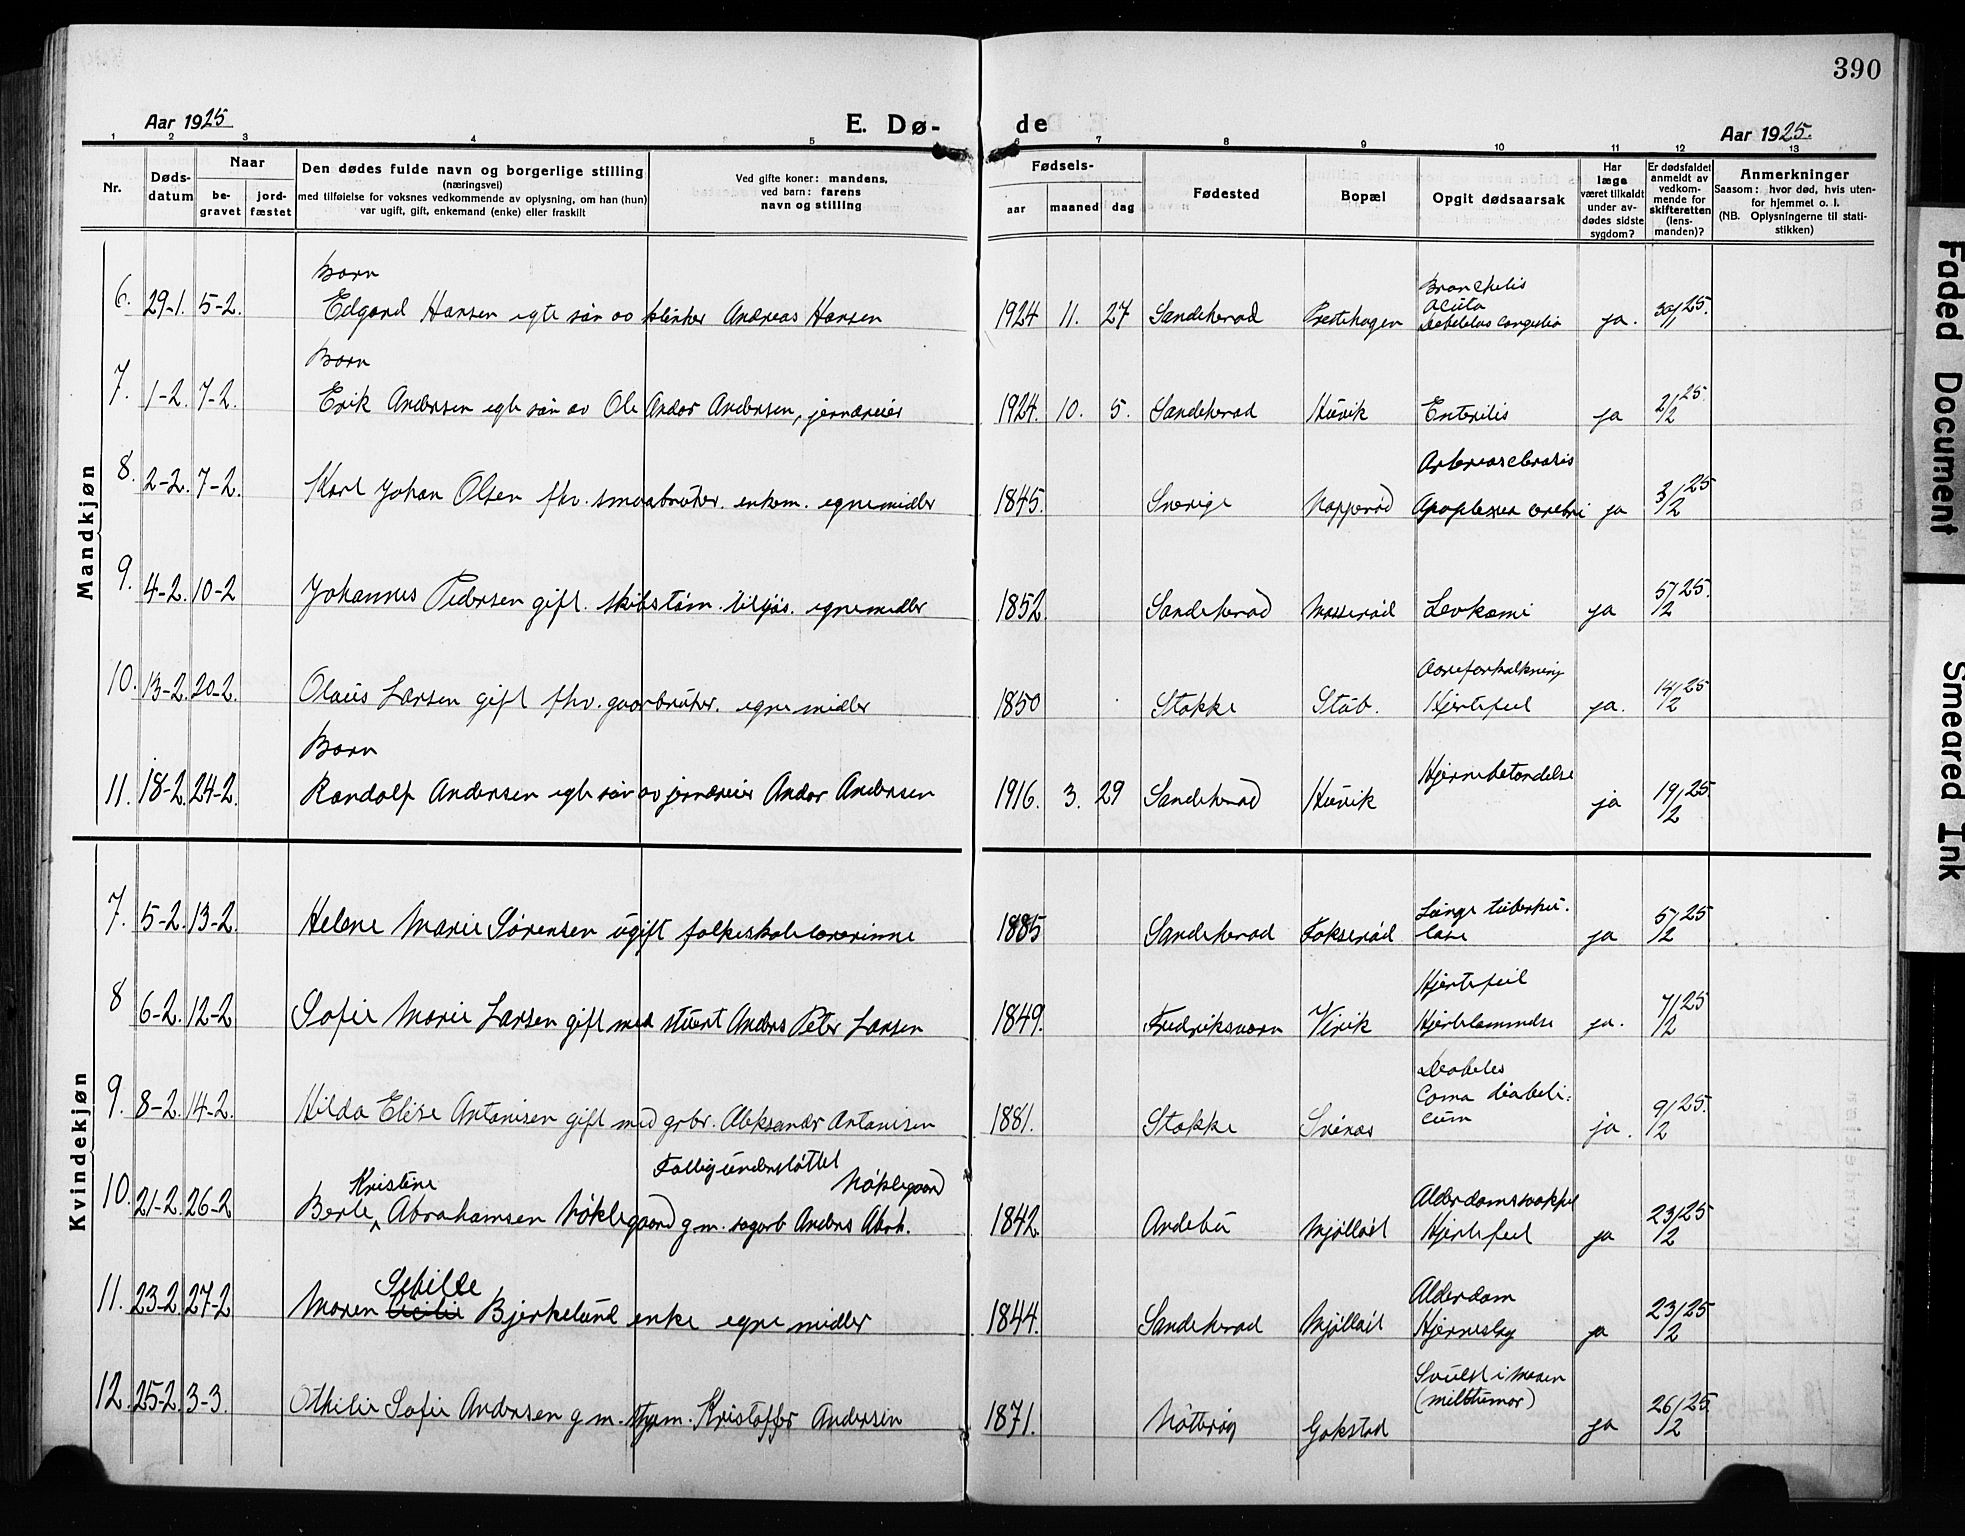 390
Aar 1925
E. Dø-
de
Aar 1925.
1 2 3 4 5 6 7 8 9 10 11 12 13
Nr.
Døds-
datum
Naar
be-
gravet
jord-
fæstet
Den dødes fulde navn og borgerlige stilling
(næringsvei)
med tilføielse for voksnes vedkommende av oplysning, om han (hun)
var ugift, gift, enkemand (enke) eller fraskilt
Ved gifte koner: mandens,
ved barn: farens
navn og stilling
Fødsels-
aar maaned dag
Fødested
Bopæl
Opgit dødsaarsak
Har
læge
været tilkaldt
under av-
dødes sidste
sygdom?
Er dødsfaldet
anmeldt av
vedkom-
mende for
skifteretten
(lens-
manden)?
Anmerkninger
Saasom: hvor død, hvis uten-
for hjemmet o. l.
(NB. Oplysningerne til stati-
stikken)
Mandkjøn
Barn
6. 29-1. 5-2. Edgard Hansen egte søn av klinker Andreas Hansen 1924 11. 27 Sandeherad Prestehagen Bronchitis
acuta
ja. 30/1 25.
Barn
7. 1-2. 7-2. Erik Andersen egte søn av Ole Andor Andersen, jerndreier 1924. 10. 5. Sandeherad Huvik Enteritis ja 2/2 25.
Arteriosclerosis
8. 2-2. 7-2. Karl Johan Olsen fhv. smaabruker. enkem. egne midler 1845. Sverige Napperød Apoplexia cerebri ja 3/2 25
9. 4-2. 10-2 Johannes Pedersen gift. skibstøm. tilsjøs. egne midler 1852. Sandeherad Mosserød Levkæmi ja 5/2 25.
Aareforkalkning
10. 13-2. 20-2. Olaus Larsen gift fhv. gaarbruker. egne midler 1850 Stokke Stub. Hjertefeil ja. 14/2 25
Barn
Hjernebetændelse
11. 18-2. 24-2. Randolf Andersen egte søn av jerndreier Andor Andersen 1916. 3. 29 Sandeherad Huvik ja 19/2 25
Kvindekjøn
Lunge tuberku-
7. 5-2. 13-2 Helene Marie Sørensen ugift folkeskolelærerinne 1885 Sandeherad Fokserød lose ja 5/2 25
Hjertefeil
8 6-2. 12-2 Sofie Marie Larsen gift med stuert Anders Peter Larsen 1849. Fredriksværn Virik Hjertelammelse ja. 7/2 25
Diabetes
Coma diabeti-
9. 8-2. 14-2. Hilda Elise Antonisen gift med grbr. Aleksander Antonisen 1881. Stokke Svines cum ja. 9/2 25.
Kristine Fattigunderstøttet Nøklegaard
Alderdomssvakhet
10. 21-2. 26-2 Berte Abrahamsen Nøklegaard g.m. sagarb Anders Abrh. 1842. Andebu Mjølløst Hjertefeil ja 23/2 25
Sehilde
Alderdom
11. 23-2. 27-2 Maren Cicilie Bjerkelund enke egne midler 1844. Sandeherad Mjølløst Hjerneslag ja 23/2 25
Svulst i maven
(milttumor)
12. 25-2. 3-3. Othilie Sofie Andersen g.m. styrm. Kristoffer Andersen 1871. Nøtterøy Gokstad ja 26/2 25
Faded Document
Smeared Ink